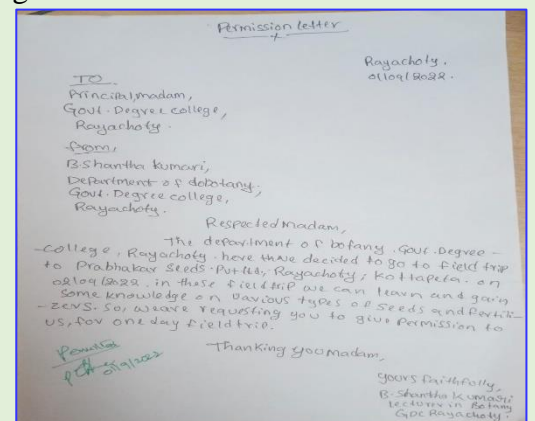 Permission letter
Rayachoty.
01/09/2022.
TO
Principal, madam,
Govt. Degree college,
Rayachoty.
from,
B. Shantha kumari,
Department of dobotany,
Govt. Degree college,
Rayachoty.
Respected madam,
The department of botany. Govt. Degree -
college, Rayachoty. have decided to go to field trip
to Prabhakar Seeds. Pvt Ltd, Rayachoty, Kottapeta. on
02/09/2022. in these field trip we can learn and gain
some knowledge on various types of seeds and fertili-
- zers. so, we are requesting you to give permission to
us, for one day field trip.
Thanking you madam,
01/9/2022
yours faithfully,
B. Shantha Kumari
Lecturer in Botany
GDC Rayachoty.